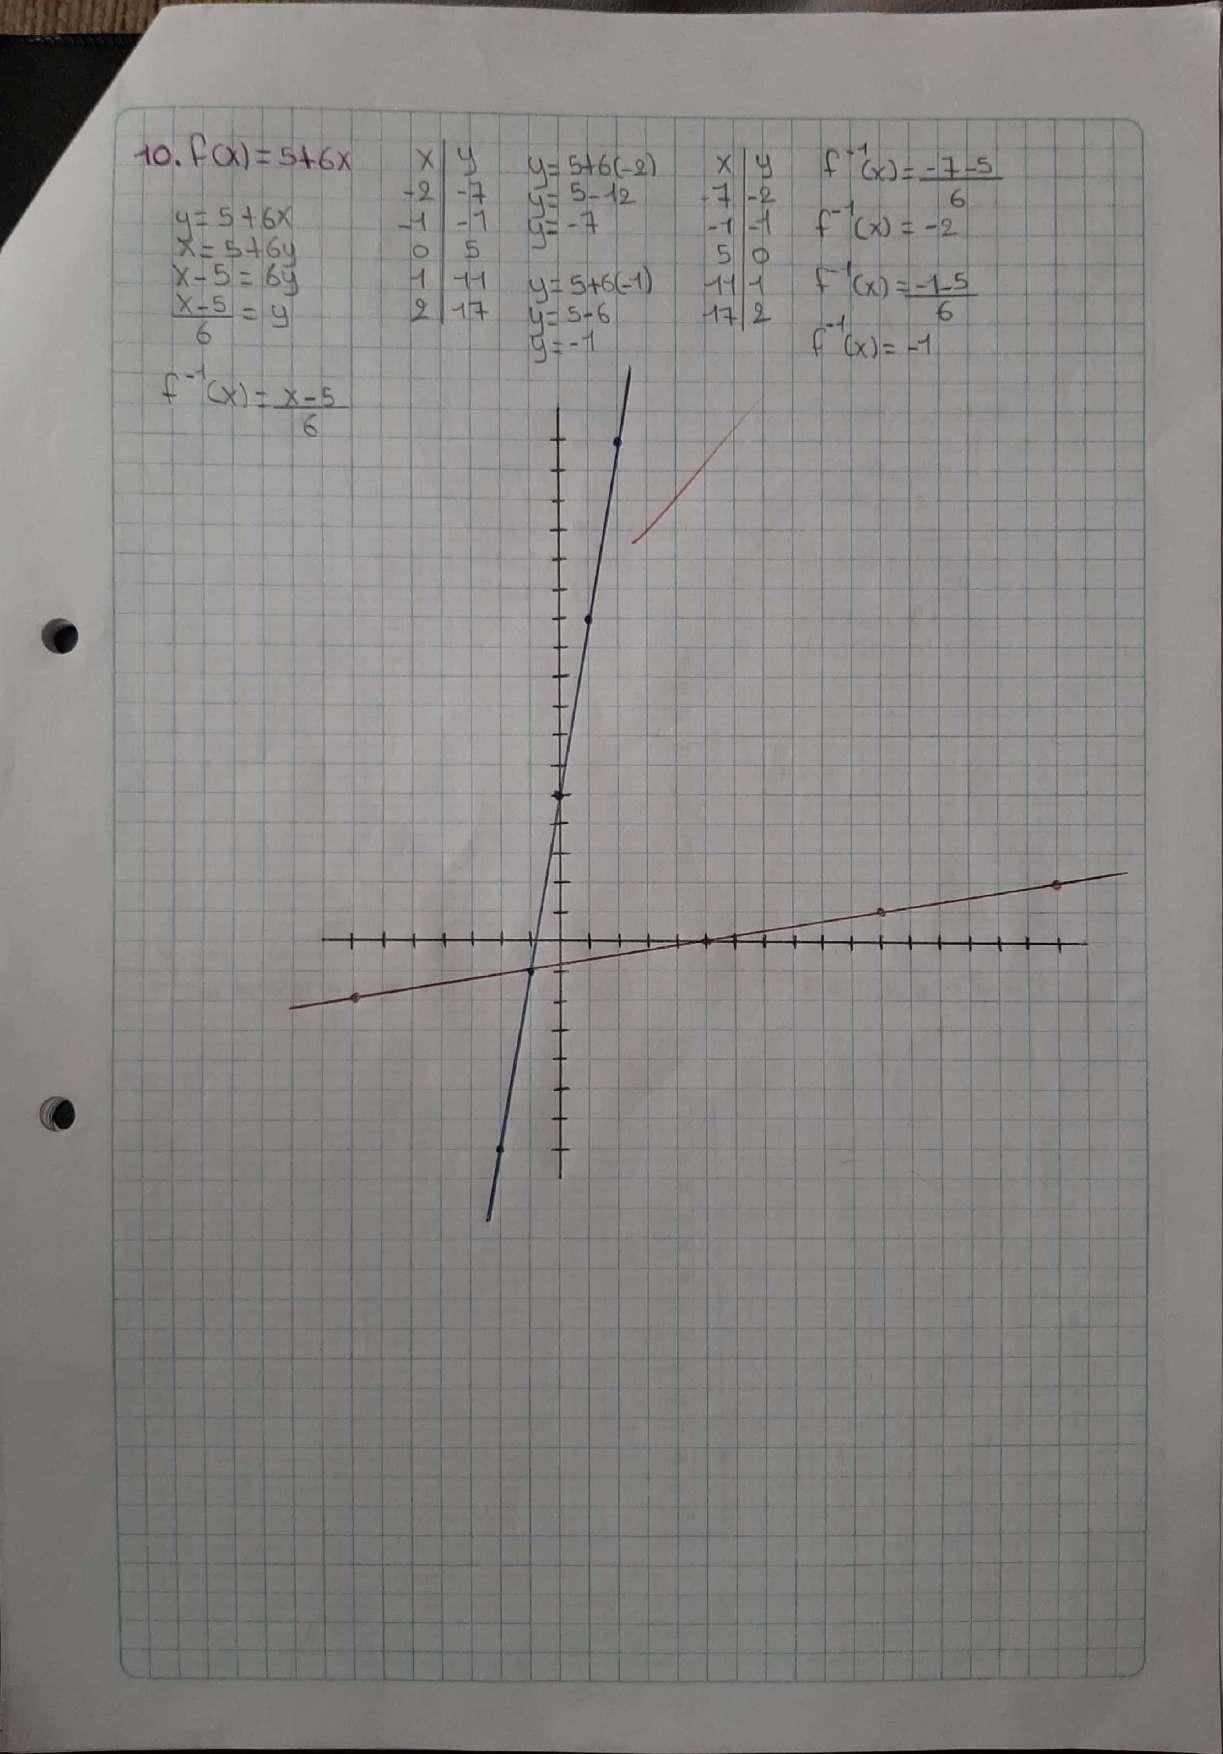 10. f(x) = 5+6x
y = 5+6x
x = 5+6y
x-5 = 6y
x-5
6
= y
f⁻¹(x) = x-5
6
x | y
-2 | -7
-1 | -1
0 | 5
1 | 11
2 | 17
y = 5+6(-2)
y = 5-12
y = -7
y = 5+6(-1)
y = 5-6
y = -1
x | y
-7 | -2
-1 | -1
5 | 0
11 | 1
17 | 2
f⁻¹(x) = -7-5
6
f⁻¹(x) = -2
f⁻¹(x) = -1-5
6
f⁻¹(x) = -1